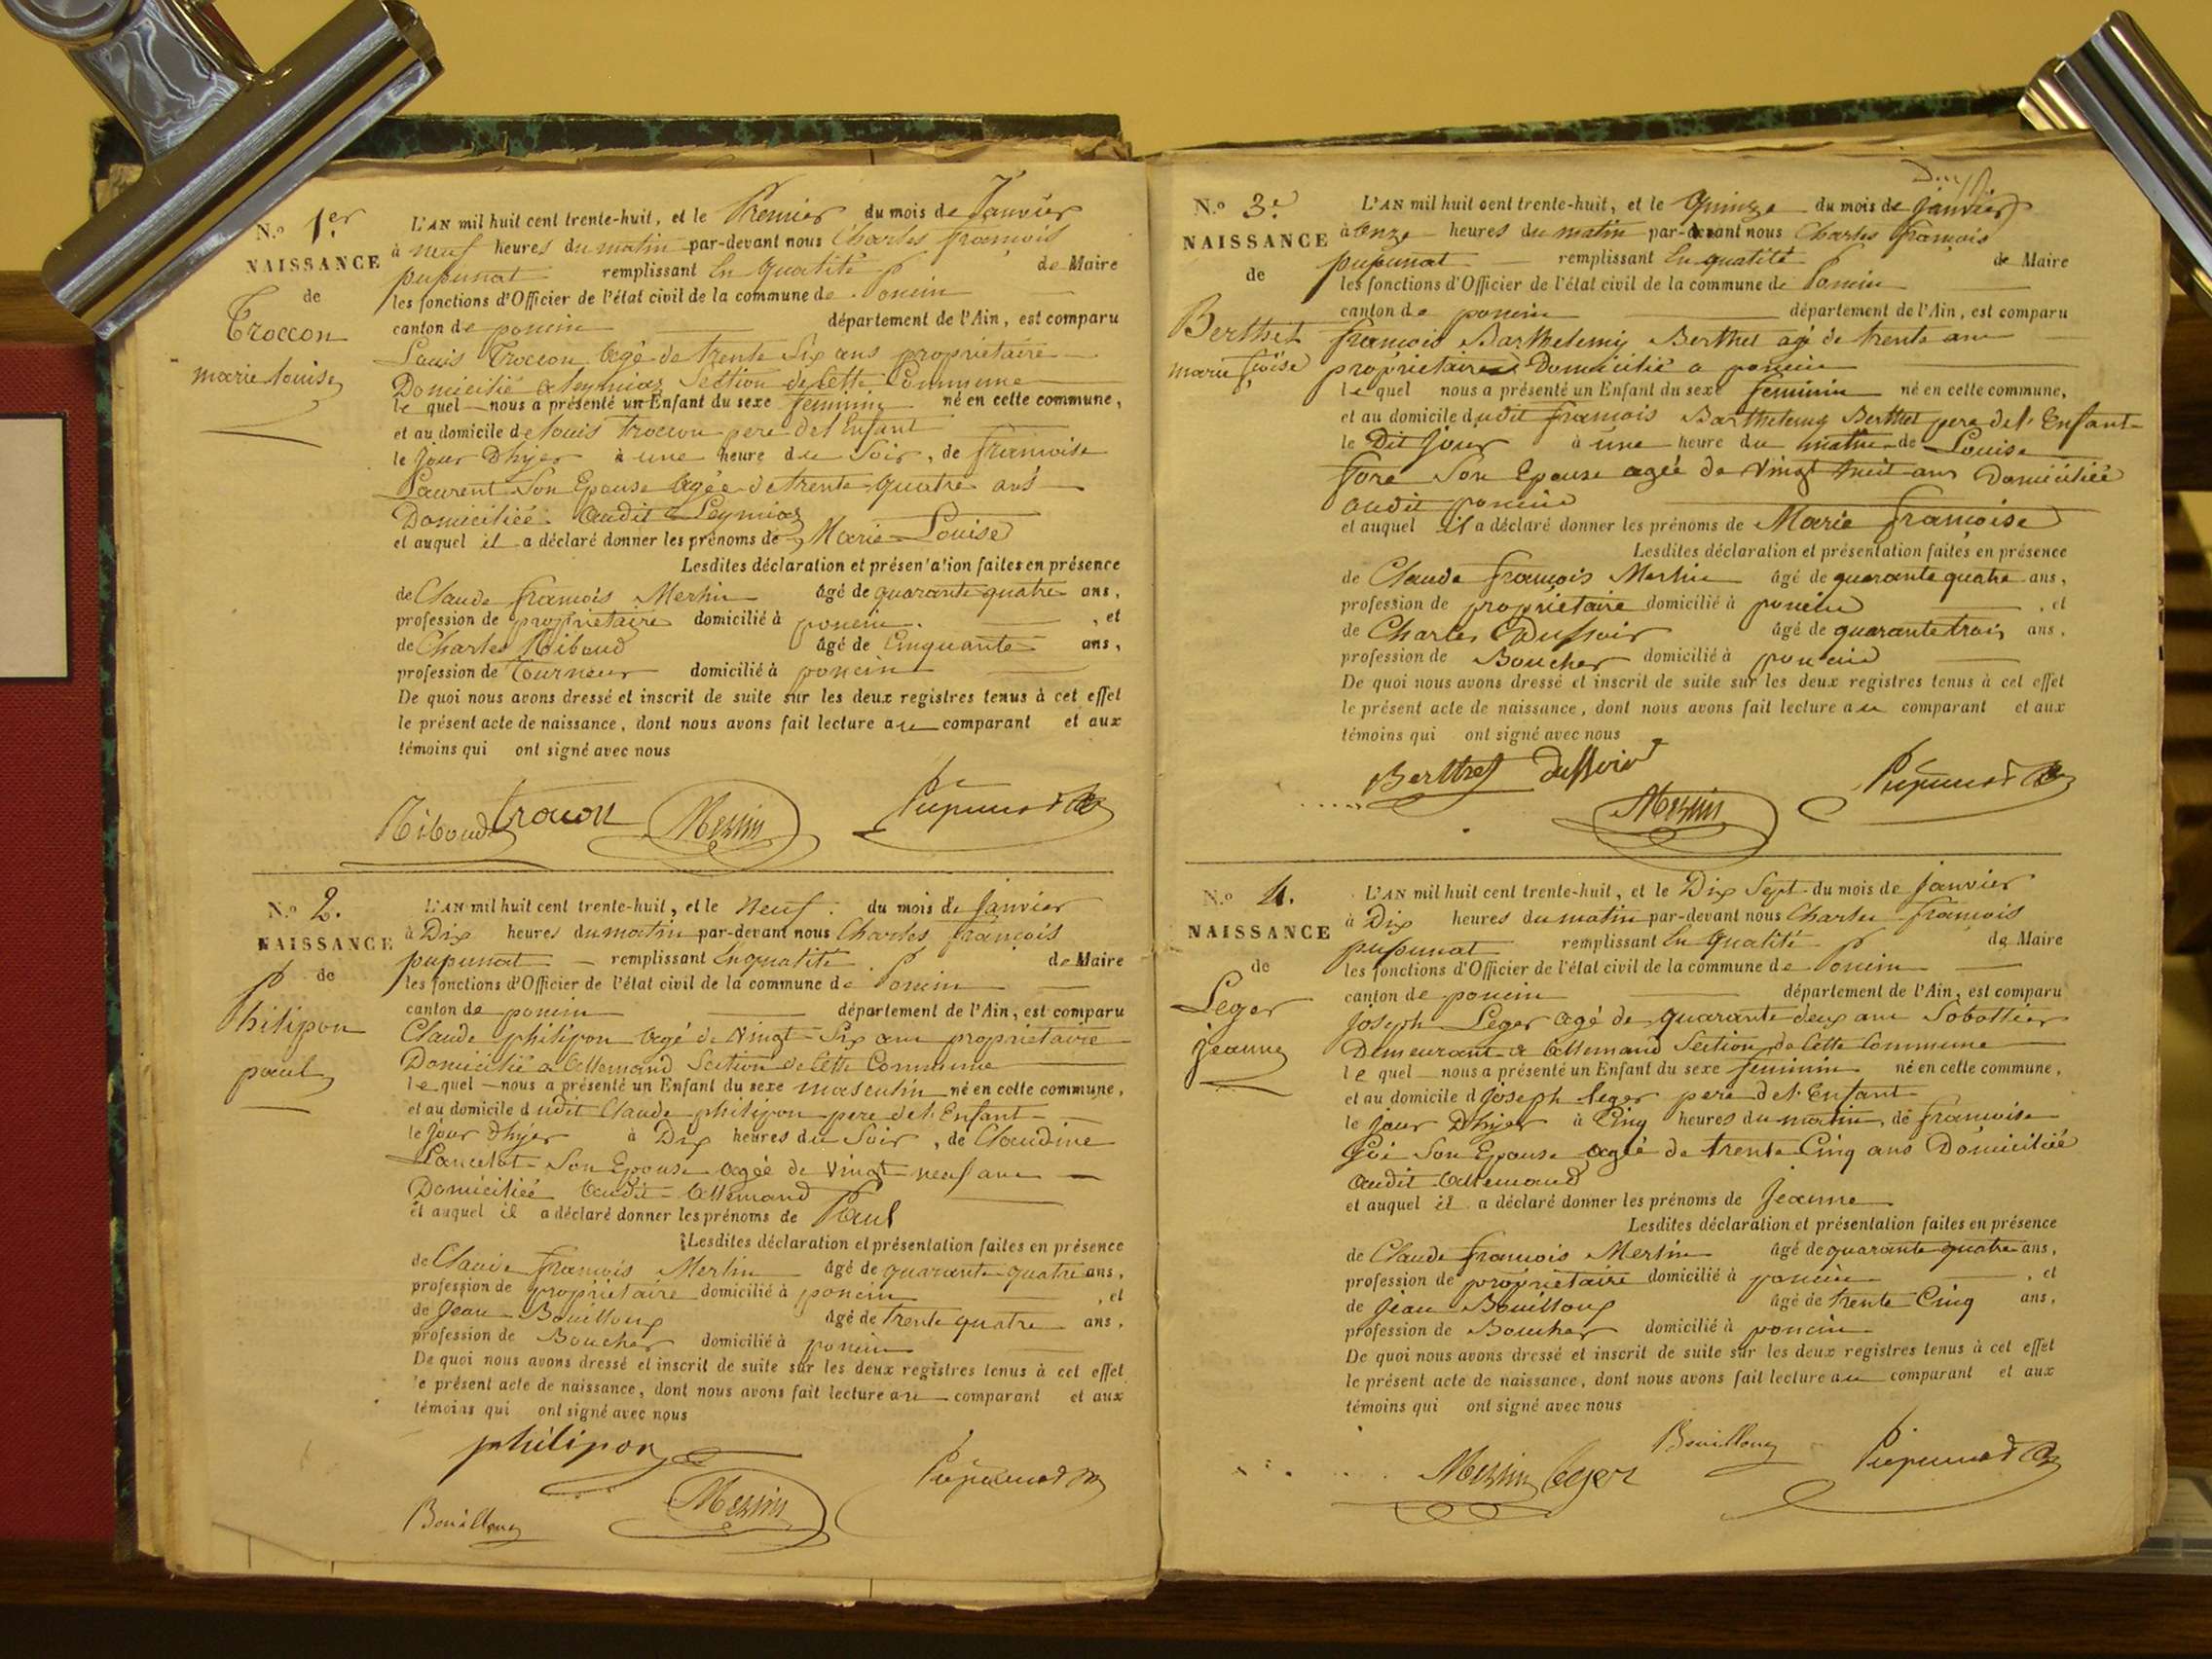 N.o 1.er
NAISSANCE
de
Troccon
marie louise
L'AN mil huit cent trente-huit, et le Premier du mois de Janvier
à neuf heures du matin par-devant nous Charles françois
pupunat remplissant En qualité de Maire
les fonctions d'Officier de l'état civil de la commune de Poncin
canton de poncin département de l'Ain, est comparu
Louis Troccon agé de trente Six ans propriétaire
Domicilié a leymiaz Section de Cette Commune
le quel nous a présenté un Enfant du sexe feminin né en cette commune,
et au domicile de louis troccon pere de l'Enfant
le jour D'hyer à une heure du Soir, de françoise
Laurent Son Epouse agée de trente quatre ans
Domiciliée audit Leymiaz
et auquel il a déclaré donner les prénoms de Marie Louise
Lesdites déclaration et présentation faites en présence
de Claude françois Merlin âgé de quarante quatre ans,
profession de propriétaire domicilié à poncin , et
de Charles Riboud âgé de Cinquante ans,
profession de Tourneur domicilié à poncin
De quoi nous avons dressé et inscrit de suite sur les deux registres tenus à cet effet
le présent acte de naissance, dont nous avons fait lecture au comparant et aux
témoins qui ont signé avec nous
Riboud troccon Merlin Pupunat
N.o 2.
NAISSANCE
de
Philipon
paul
L'AN mil huit cent trente-huit, et le Neuf du mois de Janvier
à Dix heures du matin par-devant nous Charles françois
pupunat remplissant En qualité de Maire
les fonctions d'Officier de l'état civil de la commune de Poncin
canton de poncin département de l'Ain, est comparu
Claude philipon agé de Vingt Six ans propriétaire
Domicilié a allemand Section de Cette Commune
le quel nous a présenté un Enfant du sexe masculin né en cette commune,
et au domicile d udit Claude philipon pere de l'Enfant
le jour d'hyer à Dix heures du Soir, de Claudine
Lancelot Son Epouse agée de Vingt neuf ans
Domiciliée audit allemand
et auquel il a déclaré donner les prénoms de Paul
Lesdites déclaration et présentation faites en présence
de Claude françois Merlin âgé de quarante quatre ans,
profession de propriétaire domicilié à poncin , et
de Jean Bouilloux âgé de trente quatre ans,
profession de Boucher domicilié à poncin
De quoi nous avons dressé et inscrit de suite sur les deux registres tenus à cet effet
le présent acte de naissance, dont nous avons fait lecture au comparant et aux
témoins qui ont signé avec nous
philipon
Bouilloux Merlin Pupunat
N.o 3.e
NAISSANCE
de
Berthet
marie f.çoise
L'AN mil huit cent trente-huit, et le Quinze du mois de janvier
à onze heures du matin par-devant nous Charles françois
pupunat remplissant En qualité de Maire
les fonctions d'Officier de l'état civil de la commune de Poncin
canton de poncin département de l'Ain, est comparu
françois Barthelemy Berthet agé de trente ans
propriétaire Domicilié a poncin
le quel nous a présenté un Enfant du sexe feminin né en cette commune,
et au domicile dudit françois Barthelemy Berthet pere de l'Enfant
le Dit jour à une heure du matin de Louise
fore Son Epouse agée de Vingt huit ans Domiciliée
audit poncin
et auquel il a déclaré donner les prénoms de Marie françoise
Lesdites déclaration et présentation faites en présence
de Claude françois Merlin âgé de quarante quatre ans,
profession de propriétaire domicilié à poncin , et
de Charles Dussoir âgé de quarante trois ans,
profession de Boucher domicilié à poncin
De quoi nous avons dressé et inscrit de suite sur les deux registres tenus à cet effet
le présent acte de naissance, dont nous avons fait lecture au comparant et aux
témoins qui ont signé avec nous
Berthet Dussoir
Merlin Pupunat
N.o 4.
NAISSANCE
de
Leger
jeanne
L'AN mil huit cent trente-huit, et le Dix Sept du mois de Janvier
à Dix heures du matin par-devant nous Charles françois
pupunat remplissant En qualité de Maire
les fonctions d'Officier de l'état civil de la commune de Poncin
canton de poncin département de l'Ain, est comparu
joseph Leger agé de quarante deux ans Sobottier
Demeurant a allemand Section de Cette Commune
le quel nous a présenté un Enfant du sexe feminin né en cette commune,
et au domicile d joseph leger pere de l'Enfant
le jour D'hyer à Cinq heures du matin, de françoise
Goi Son Epouse agée de trente Cinq ans Domiciliée
audit allemand
et auquel il a déclaré donner les prénoms de Jeanne
Lesdites déclaration et présentation faites en présence
de Claude françois Merlin âgé de quarante quatre ans,
profession de propriétaire domicilié à poncin , et
de jean Bouilloux âgé de trente Cinq ans,
profession de Boucher domicilié à poncin
De quoi nous avons dressé et inscrit de suite sur les deux registres tenus à cet effet
le présent acte de naissance, dont nous avons fait lecture au comparant et aux
témoins qui ont signé avec nous
Merlin leger Bouilloux Pupunat